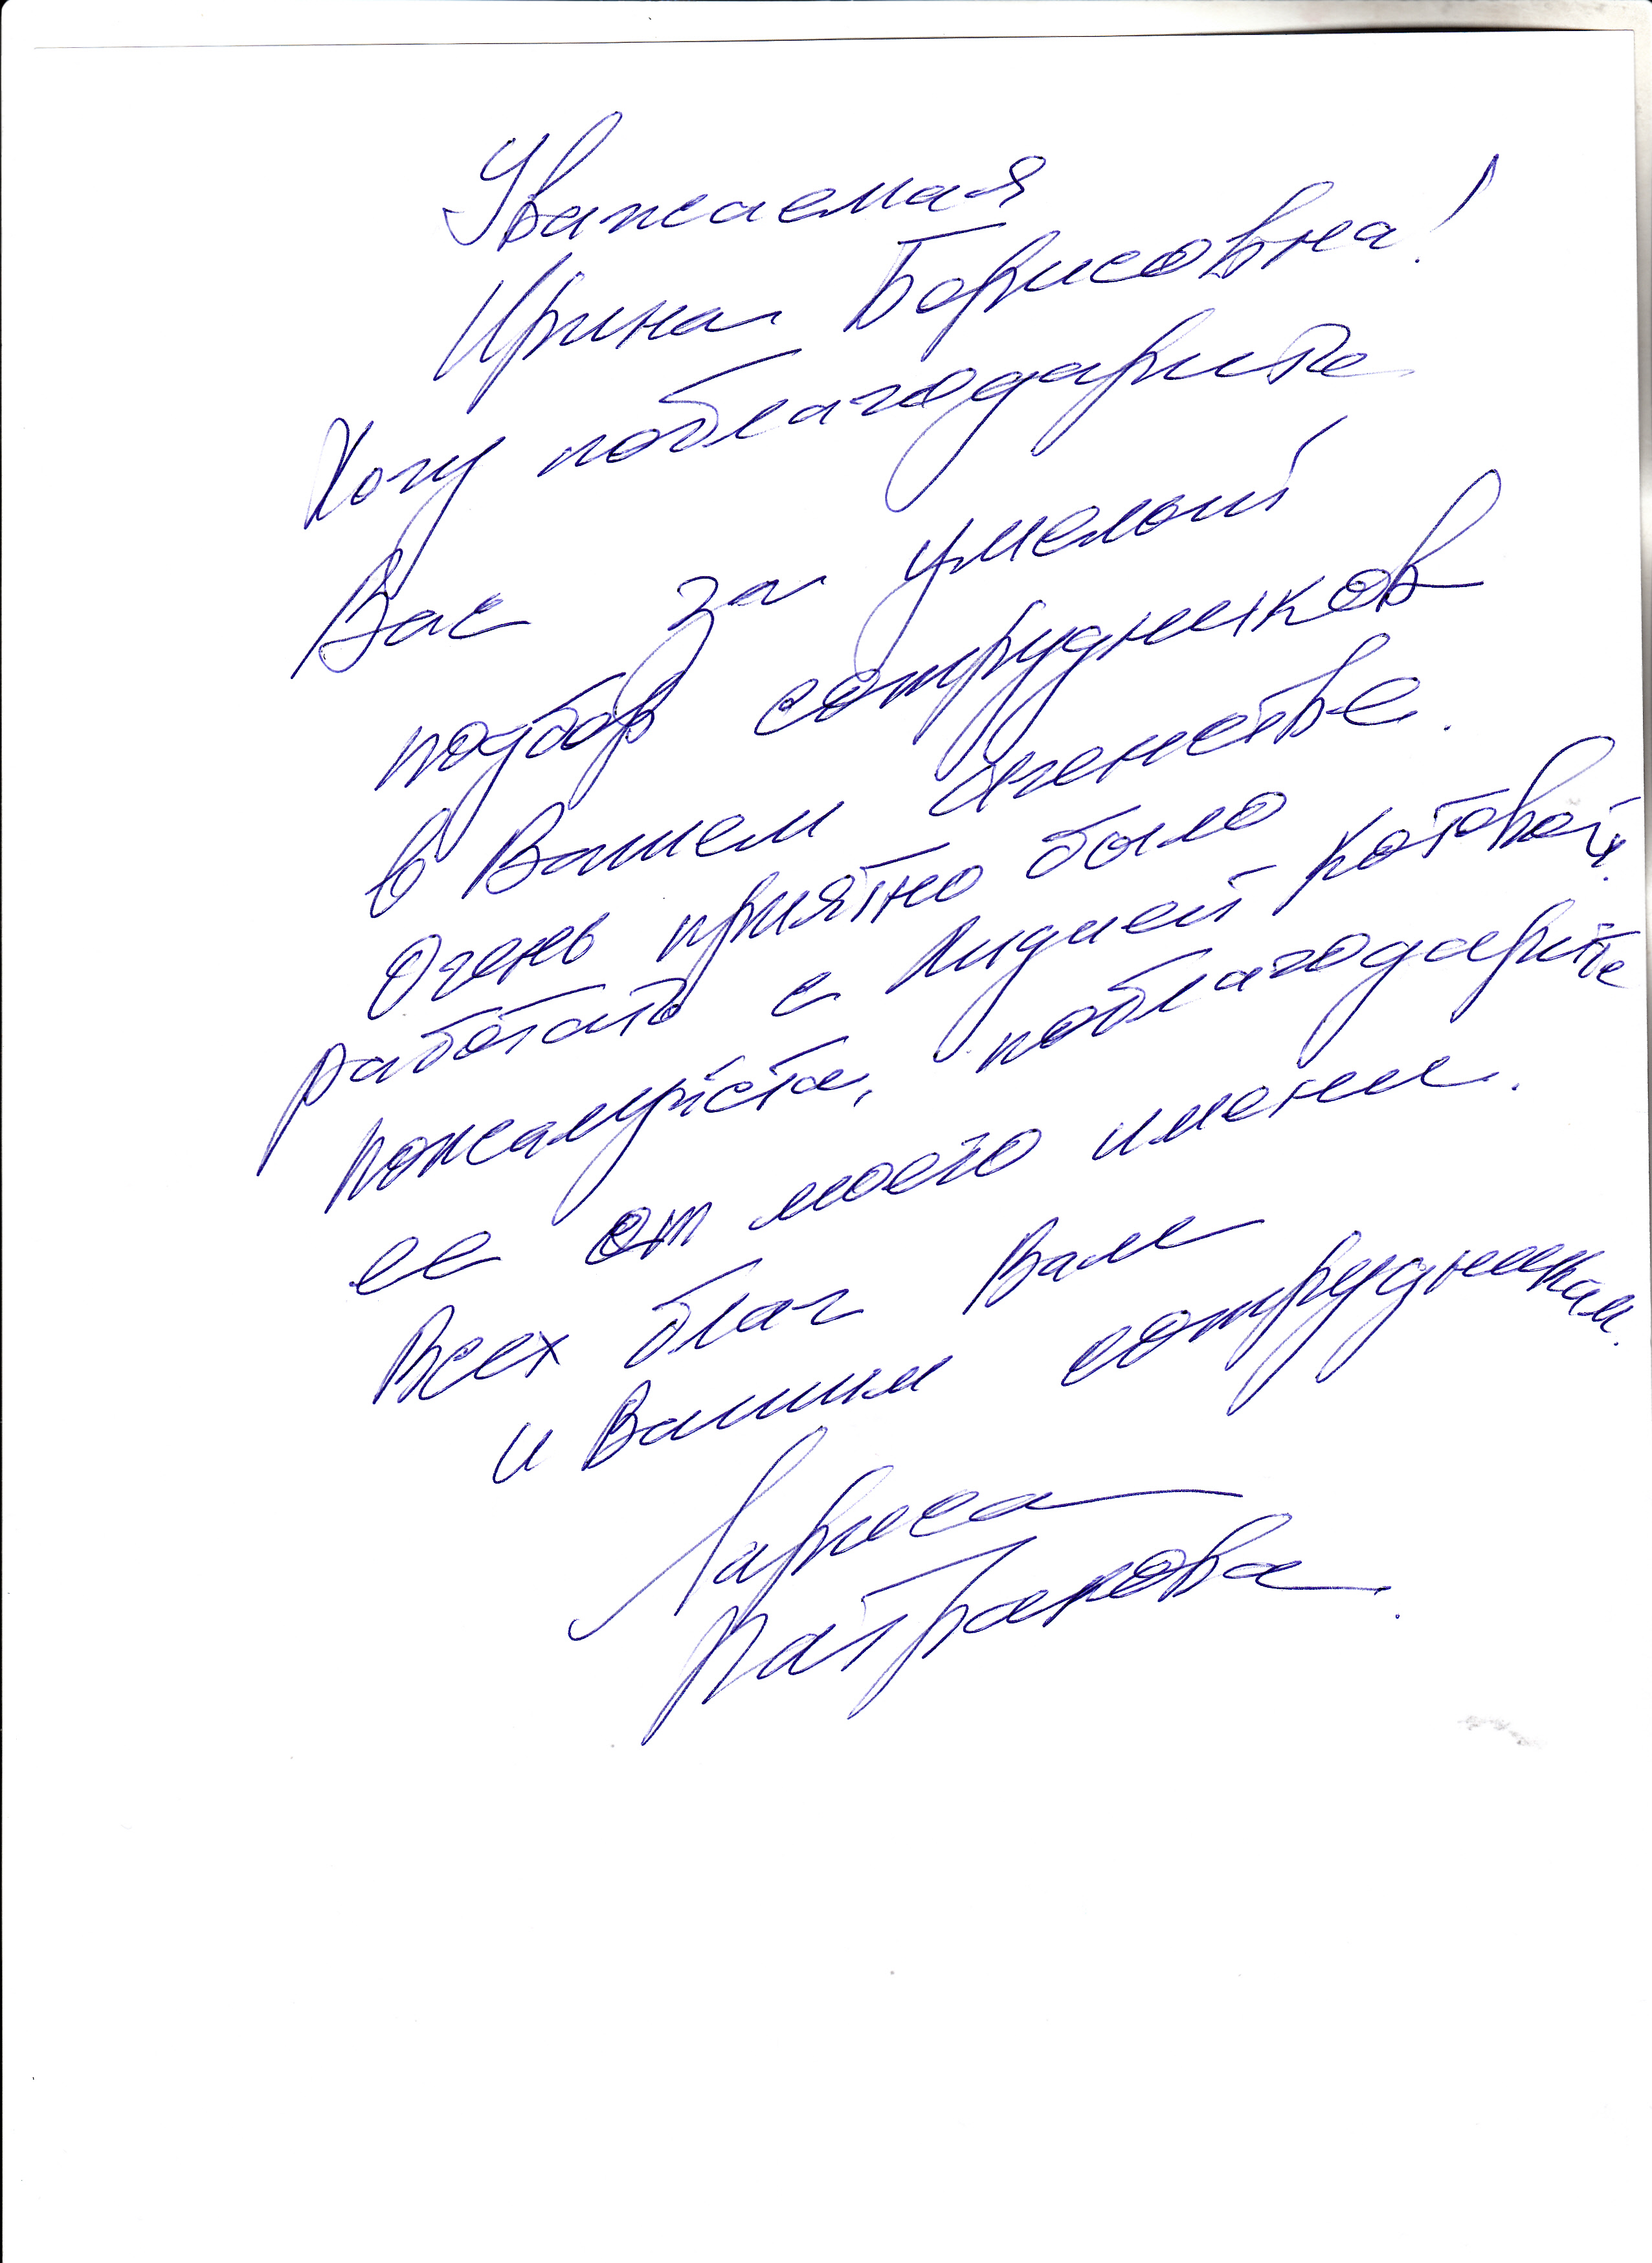 Уважаемая
Ирина Борисовна!
Хочу поблагодарить
Вас за умелый
подбор сотрудников
в Вашем агенстве.
Очень приятно было
работать с Лидией Котовой.
пожалуйста, поблагодарите
ее от моего имени.
Всех благ Вам
и Вашим сотрудникам.
Лариса
Патракова.